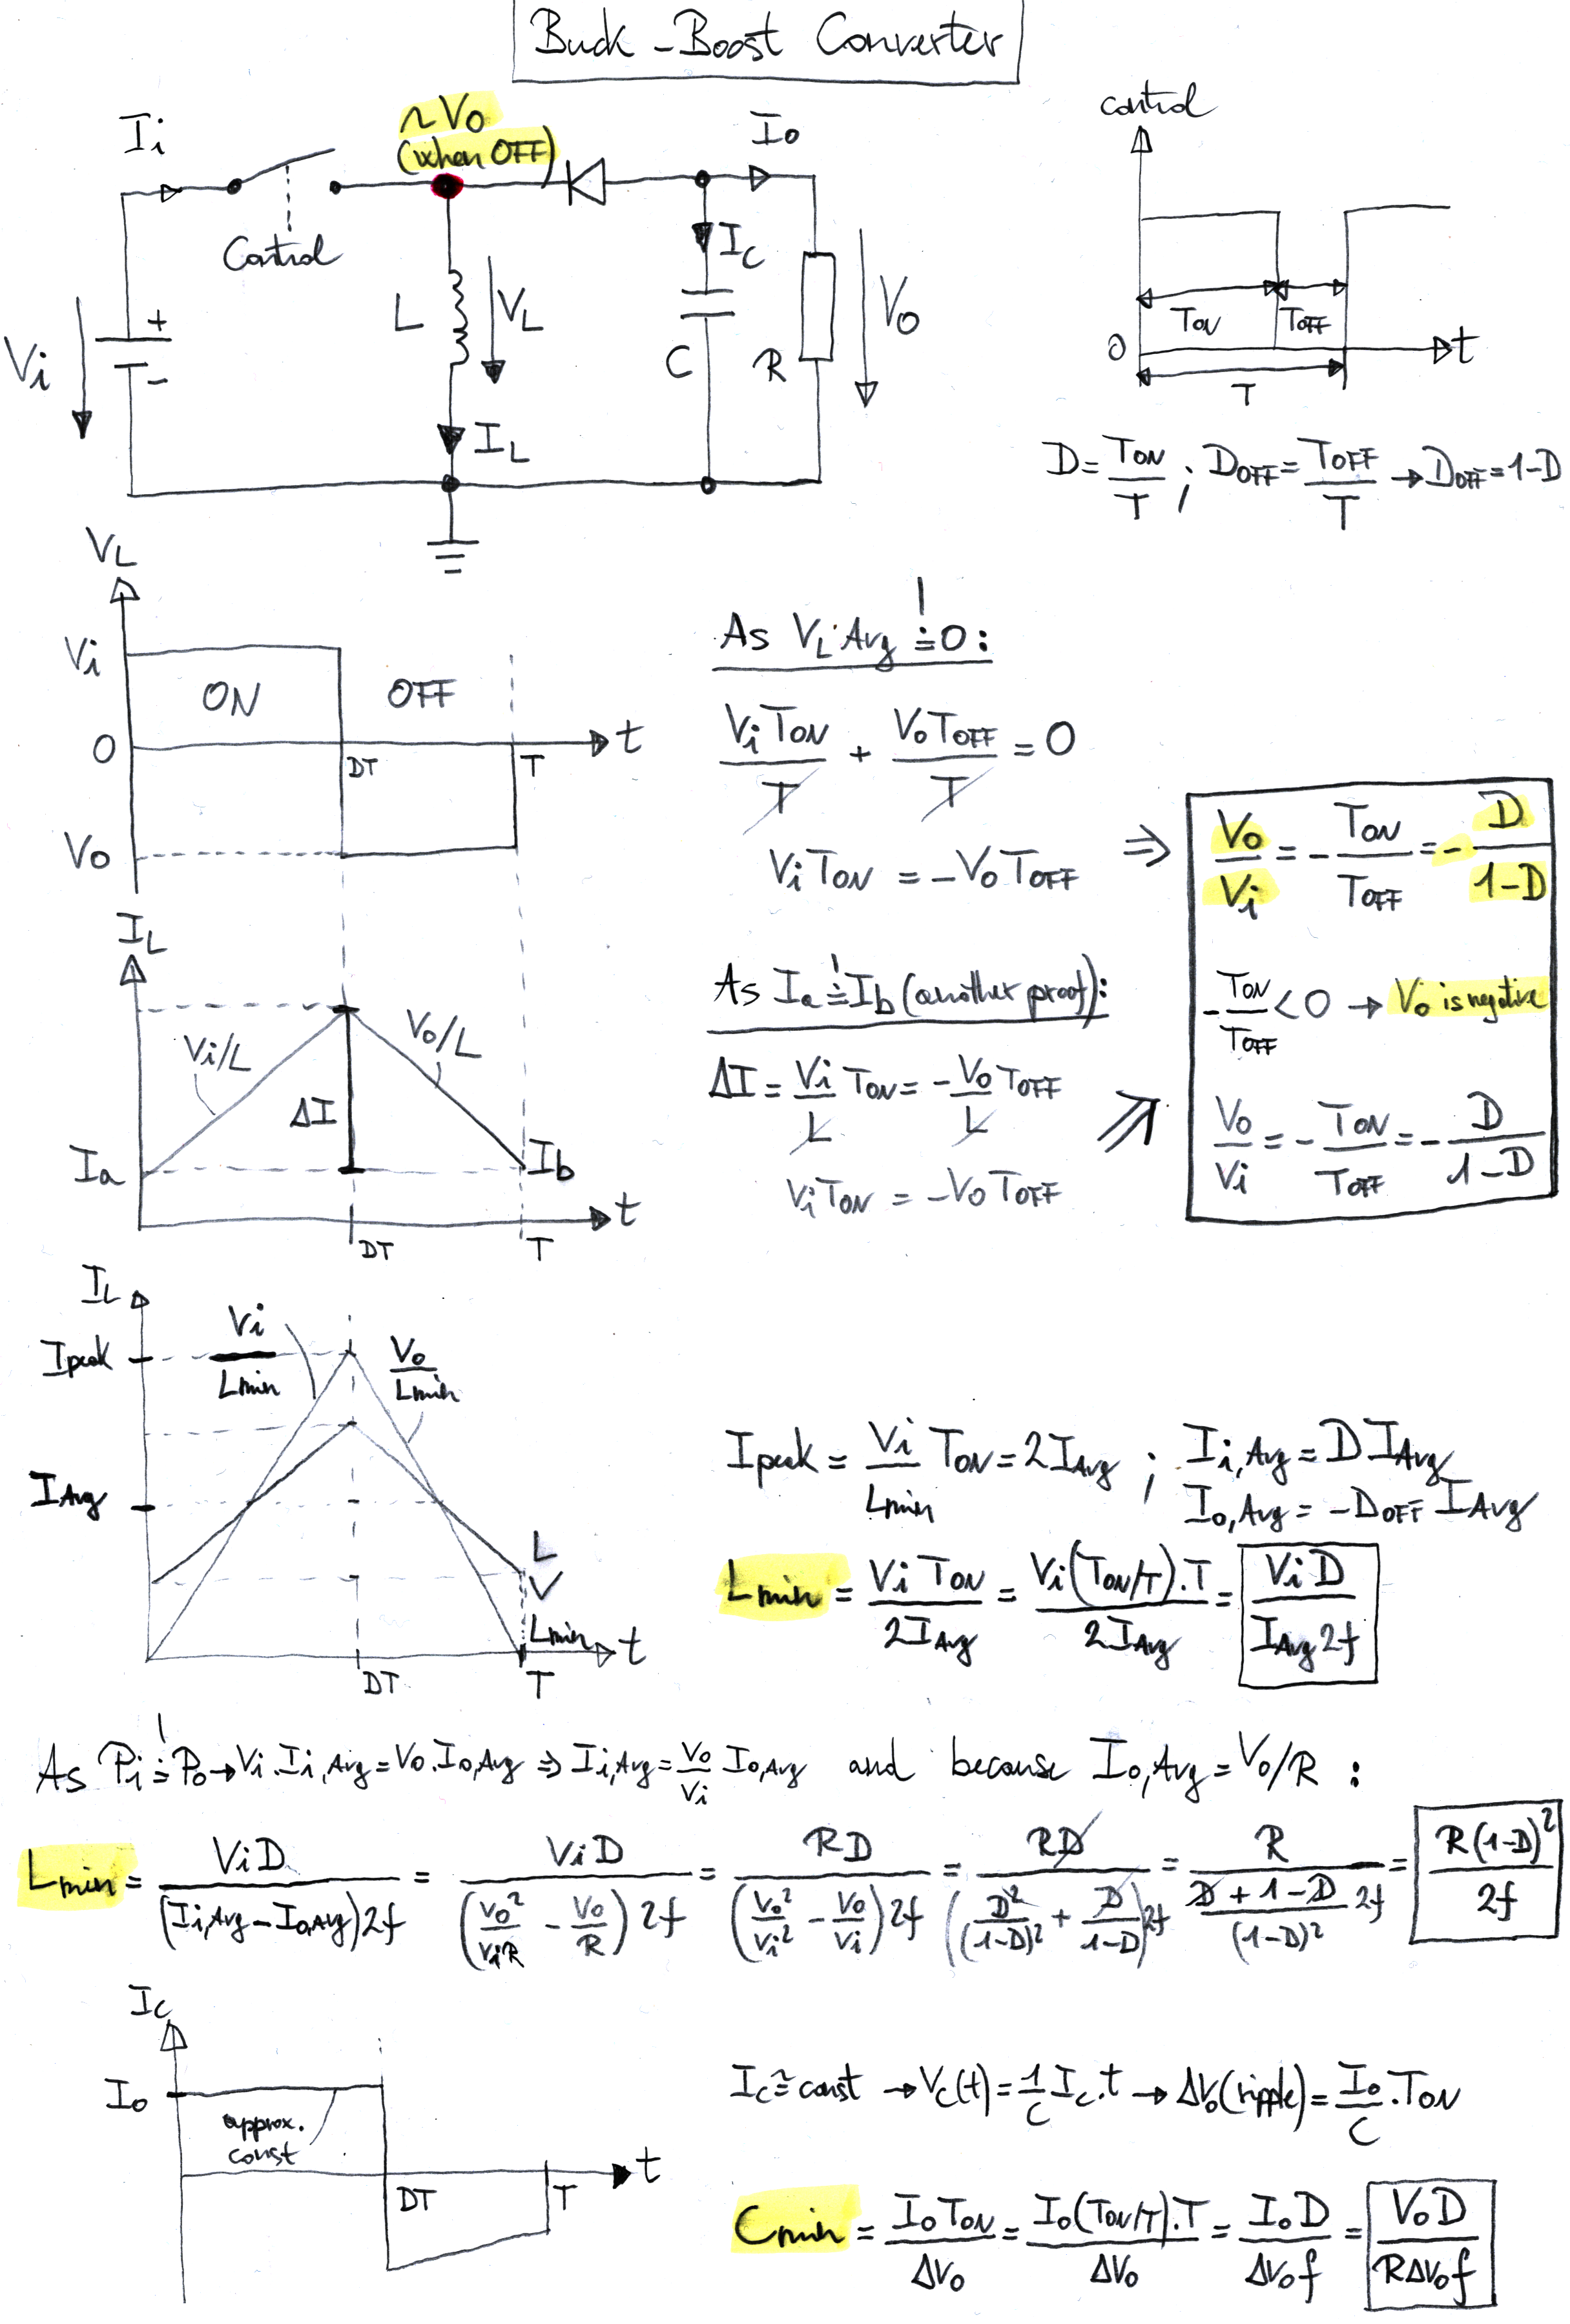 Buck-Boost Converter
Ii
~Vo
(when OFF)
Io
control
Control
IC
L
VL
C
R
Vo
Vi
+
-
IL
TON
TOFF
0
t
T
D=TON/T ; DOFF=TOFF/T →DOFF=1-D
VL
Vi
ON
OFF
0
t
DT
T
Vo
As VL Avg =! 0:
ViTON/T + VoTOFF/T = 0
ViTON = -VoTOFF
⇒
Vo/Vi = -TON/TOFF = -D/1-D
-TON/TOFF < 0 → Vo is negative
Vo/Vi = -TON/TOFF = -D/1-D
IL
Vi/L
Vo/L
ΔI
Ia
Ib
t
DT
T
As Ia =! Ib (another proof):
ΔI = Vi/L TON = -Vo/L TOFF
ViTON = -Vo TOFF
⇒
IL
Ipeak
Vi/Lmin
Vo/Lmin
IAvg
L
V
Lmin
t
DT
T
Ipeak = Vi/Lmin TON = 2IAvg ; Ii,Avg = D IAvg
Io,Avg = -DOFF IAvg
Lmin = Vi TON/2IAvg = Vi(TON/T).T/2IAvg = ViD/IAvg2f
As Pi =! Po → Vi.Ii,Avg = Vo.Io,Avg ⇒ Ii,Avg = Vo/Vi Io,Avg and because Io,Avg = Vo/R :
Lmin = ViD/(Ii,Avg - Io,Avg)2f = ViD/(Vo²/ViR - Vo/R)2f = RD/(Vo²/Vi² - Vo/Vi)2f = RD/(D²/(1-D)² + D/1-D)2f = R/(D+1-D/(1-D)² 2f) = R(1-D)²/2f
IC
Io
approx.
const
t
DT
T
IC ≅ const → VC(t) = 1/C IC.t → ΔVo(ripple) = Io/C .TON
Cmin = Io TON/ΔVo = Io(TON/T).T/ΔVo = IoD/ΔVof = VoD/RΔVof